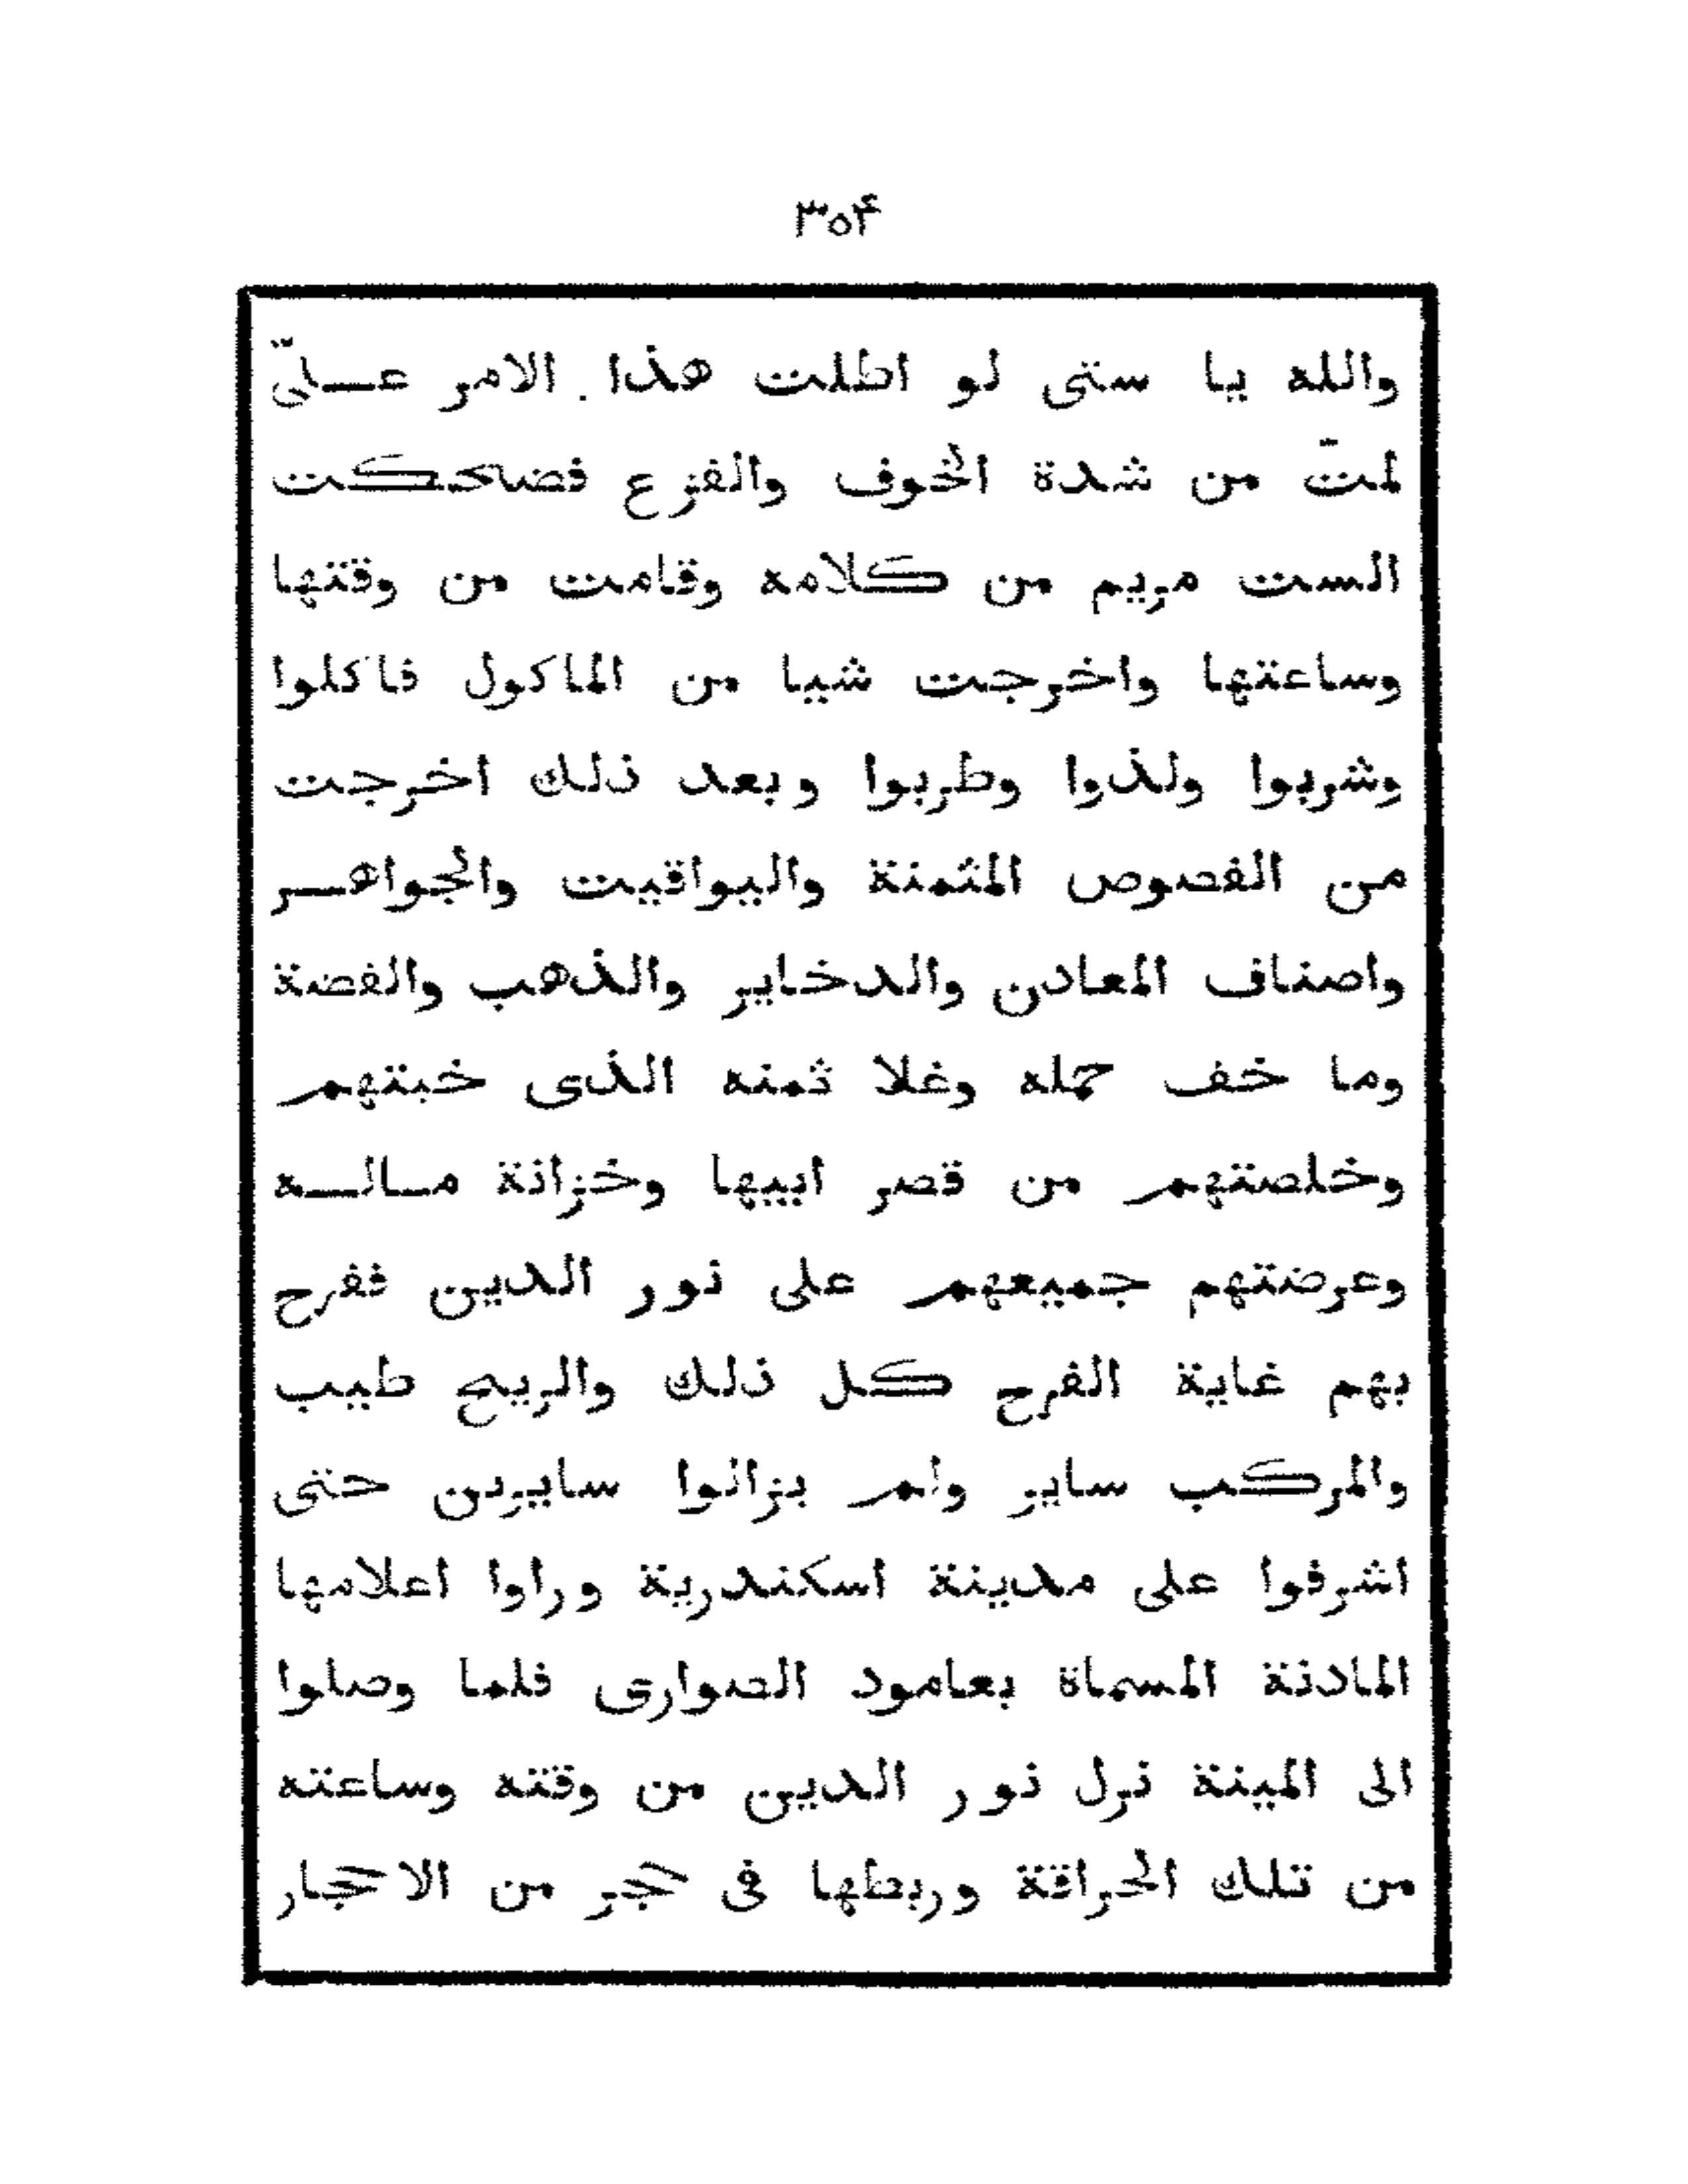 ٣٥۴
والله يا ستى لو اطلت هذا . الامر علىّ
لمتّ من شدة الخوف والفزع فضحكت
الست مريم من كلامه وقامت من وقتها
وساعتها واخرجت شيا من الماكول فاكلوا
وشربوا ولذوا وطربوا وبعد ذلك اخرجت
من الفصوص المثمنة واليواقيت والجواهر
واصناف المعادن والدخاير والذهب والفضة
وما خف حمله وغلا ثمنه الذى خبتهم
وخلصتهم من قصر ابيها وخزانة ماله
وعرضتهم جميعهم على نور الدين ففرح
بهم غاية الفرح كل ذلك والريح طيب
والمركب ساير ولم يزالوا سايرين حتى
اشرفوا على مدينة اسكندرية وراوا اعلامها
المادنة المسماة بعامود الصوارى فلما وصلوا
الى المينة نزل نور الدين من وقته وساعته
من تلك الحراقة وربطها فى حجر من الاحجار